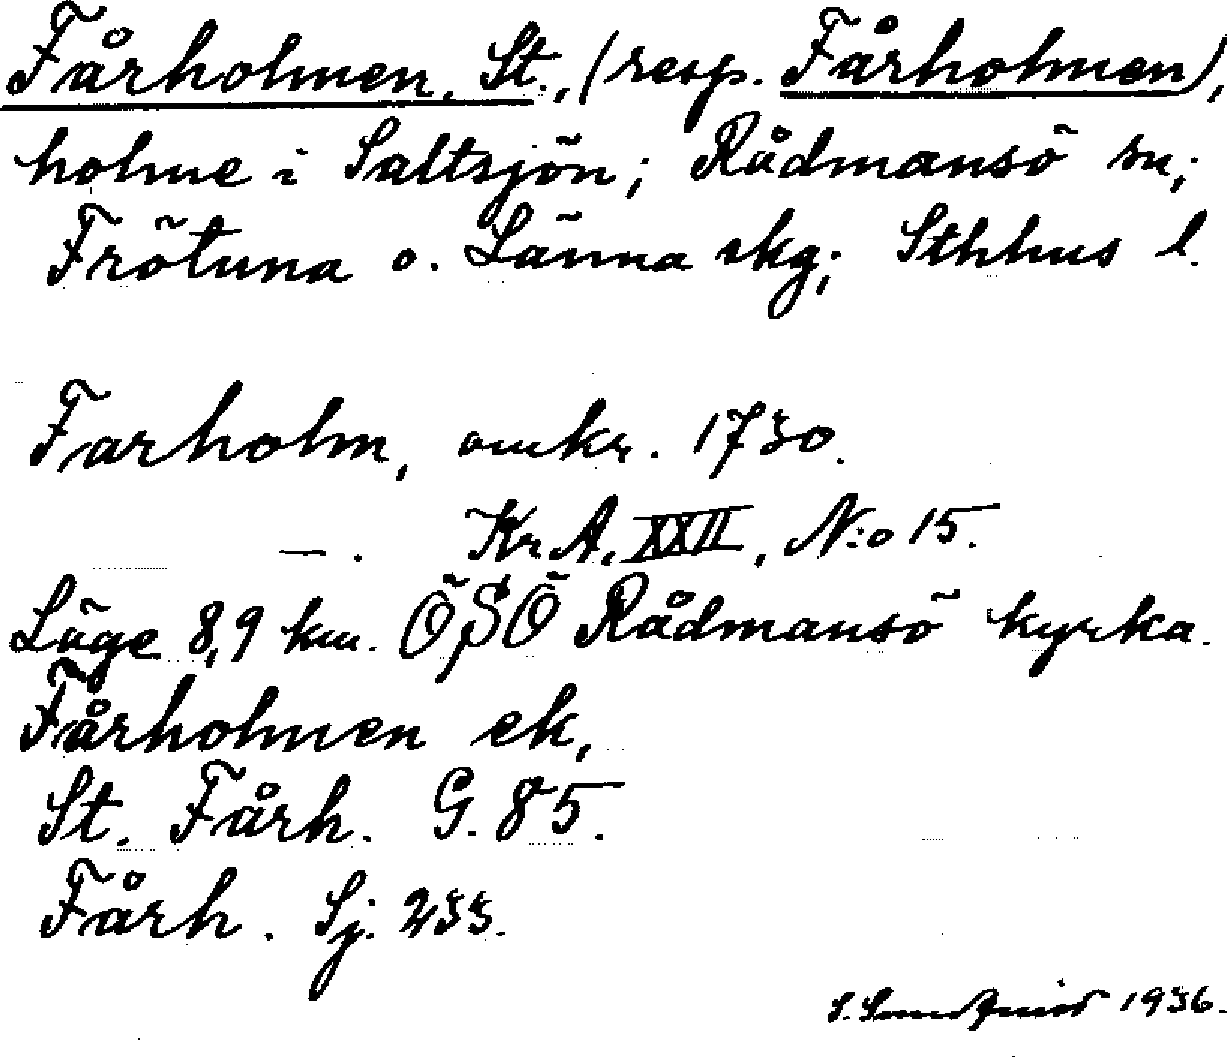 Fårholmen, St., (resp. Fårholmen),
holme i Saltsjön; Rådmansö sn;
Frötuna o. Länna skg; Sthhus l.
Farholm, omkr. 1730.
— . Kr. A. XXII, N:o 15.
Läge 8,9 km. ÖSÖ Rådmansö kyrka.
Fårholmen ek,
St. Fårh. G. 85.
Fårh. Sj. 233.
S. 1936.